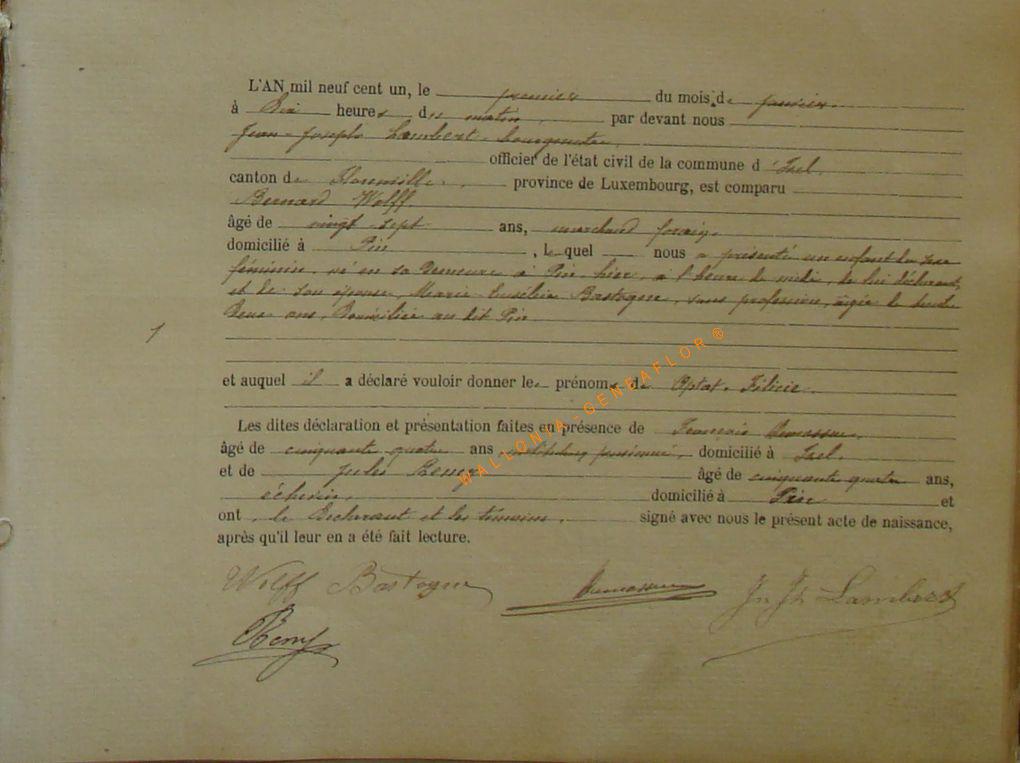 L'AN mil neuf cent un, le premier du mois de janvier
à dix heures du matin par devant nous
Jean-Joseph Lambert, bourgmestre,
officier de l'état civil de la commune d'Izel.
canton de Florenville, province de Luxembourg, est comparu
Bernard Wolff.
âgé de vingt sept ans, marchand forain,
domicilié à Pin, lequel nous a présenté un enfant du sexe
féminin, né en sa demeure à Pin hier, à l'heure de midi, de lui déclarant,
et de son épouse, Marie Bastogne, sans profession, âgée de trente
deux ans, domiciliée au dit Pin
1
et auquel il a déclaré vouloir donner les prénoms de Optat, Félicie.
Les dites déclaration et présentation faites en présence de François
âgé de cinquante quatre ans pensionné, domicilié à Izel.
et de Jules Remy âgé de cinquante quatre ans,
échevin, domicilié à Pin et
ont, le déclarant et les témoins, signé avec nous le présent acte de naissance,
après qu'il leur en a été fait lecture.
Wolff Bastogne Jn Jh Lambert
Remy
WALLONIA-GENEAFLOR®